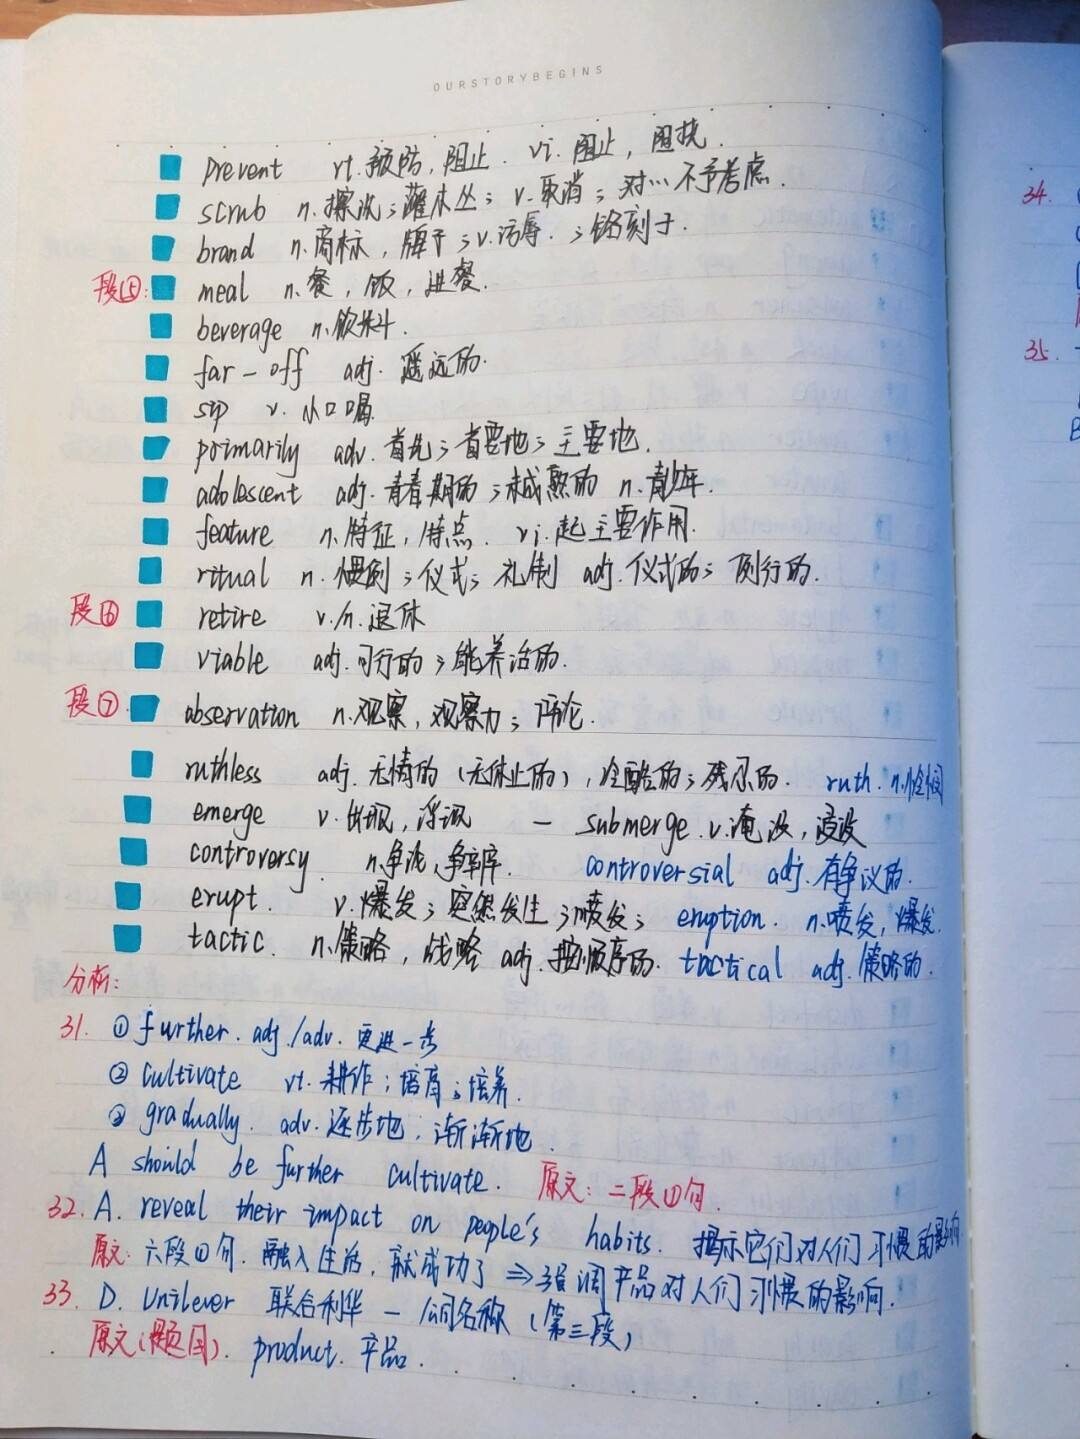 OURSTORYBEGINS
prevent vt.预防,阻止. vi.阻止,困扰.
scrub n.擦洗;灌木丛; v.取消;对…不予考虑.
brand n.商标,牌子;v.污辱.;铭刻于.
段⑤: meal n.餐,饭,进餐.
beverage n.饮料.
far-off adj.遥远的.
sip v.小口喝
primarily adv.首先;首要地;主要地.
adolescent adj.青春期的;未成熟的 n.青少年.
feature n.特征,特点. vi.起主要作用.
ritual n.惯例;仪式;礼制 adj.仪式的;例行的.
段⑥ retire v./n.退休
viable adj.可行的;能养活的.
段⑦. observation n.观察,观察力;评论.
ruthless adj.无情的(无休止的),冷酷的;残忍的. ruth.n.怜悯
emerge v.出现,浮现 — submerge.v.淹没,浸没
controversy. n.争论,争辩. controversial adj.有争议的.
erupt. v.爆发;突然发生;喷发; eruption. n.喷发,爆发.
tactic. n.策略,战略 adj.按顺序的. tactical adj.策略的.
分析:
31. ①further.adj./adv.更进一步
②cultivate vt.耕作;培育;培养.
③gradually.adv.逐步地;渐渐地.
A should be further cultivate. 原文:二段①句.
32. A. reveal their impact on people's habits. 揭示它们对人们习惯的影响
原文:六段①句,融入生活,就成功了⇒强调产品对人们习惯的影响.
33. D. Unilever 联合利华 — 公司名称(第三段)
原文(题因). product.产品.
34.
35.